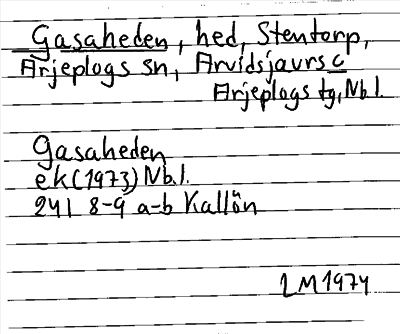 Gasaheden, hed, Stentorp,
Arjeplogs sn, Arvidsjaurs c
Arjeplogs tg, Nb.l.
Gasaheden
ek (1973) Nb.l.
241 8-9 a-b Kallön
LM 1974